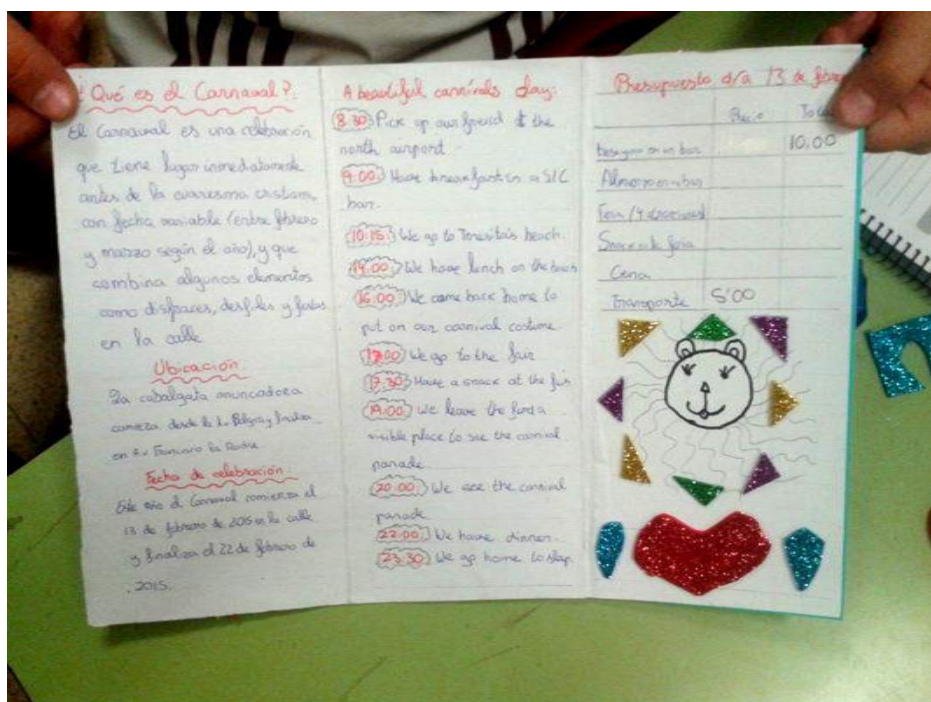 ¿Qué es el Carnaval?
El Carnaval es una celebración
que tiene lugar inmediatamente
antes de la cuaresma cristiana,
con fecha variable (entre febrero
y marzo según el año), y que
combina algunos elementos
como disfraces, desfiles y fiestas
en la calle
Ubicación
La cabalgata anunciadora
comienza desde la
en Av Francisco la Roche
Fecha de celebración
Este año el Carnaval comienza el
13 de febrero de 2015 en la calle
y finaliza el 22 de febrero de
2015.
A beautiful carnivals day:
8:30 Pick up our friend at the
north airport
9:00 Have breakfast in a S/C
bar.
10:15 We go to Teresitas beach.
14:00 We have lunch on the beach
16:00 We come back home to
put on our carnival costume
17:00 We go to the fair
17:30 Have a snack at the
19:00 We leave the
visible place to see the carnival
parade
20:00 We see the carnival
parade
22:00 We have dinner.
23:30 We go home to sleep
Presupuesto día 13 de
Precio
desayuno en un bar 10,00
Almuerzo en un bar
Feria (4 atracciones)
Snack en la feria
Cena
Transporte 5'00